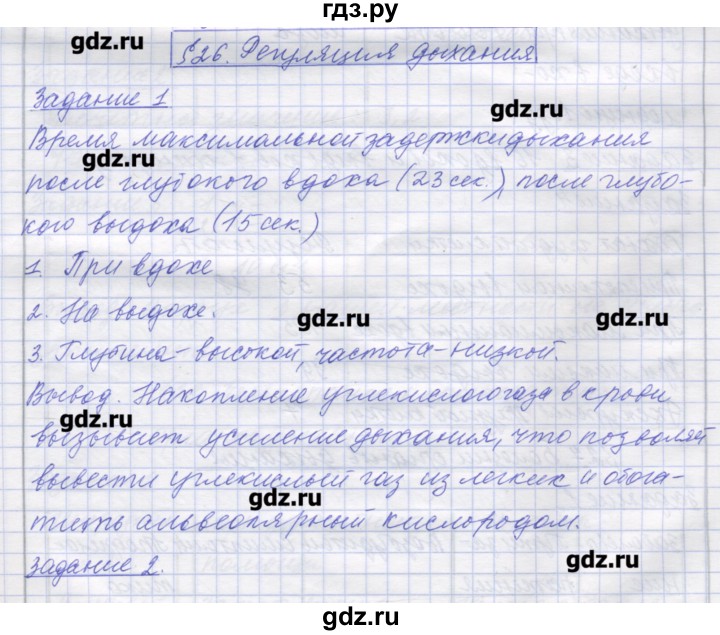 гдз.ру
gdz.ru
§26. Регуляция дыхания
Задание 1
gdz.ru
Время максимальной задержки дыхания
gdz.ru
после глубокого вдоха (23 сек.), после глубо-
кого выдоха (15 сек.)
1. При вдохе
2. На выдохе.
gdz.ru
gdz.ru
3. Глубина - высокой, частота - низкой.
Вывод. Накопление углекислого газа в крови
gdz.ru
вызывает усиление дыхания, что позволяет
вывести углекислый газ из легких и обога-
gdz.ru
тить альвеолярный кислородом.
Задание 2.
gdz.ru
gdz.ru